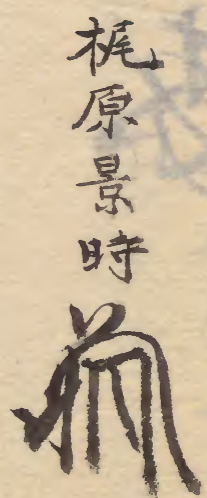 梶原景時